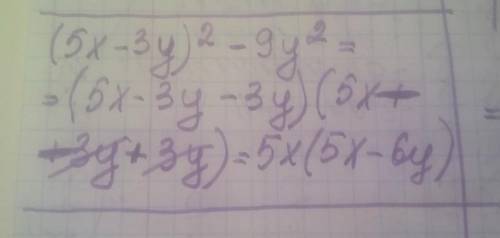 (5x-3y)² - 9y² =
= (5x-3y-3y)(5x+
+3y+3y) = 5x(5x-6y)
=